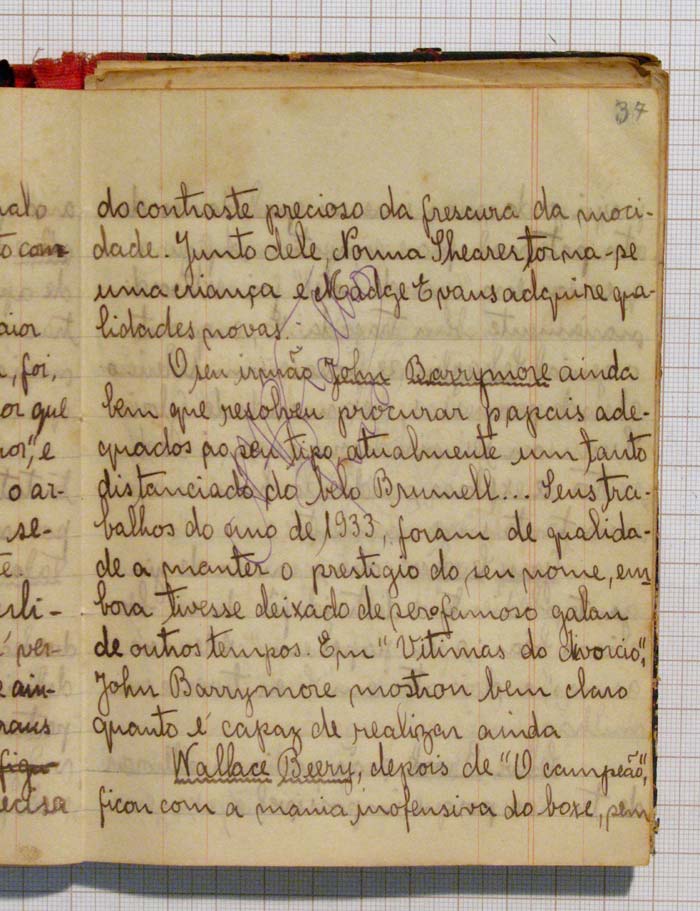 37
do contraste precioso da frescura da moci-
dade. Junto dele, Norma Shearer torna-se
uma criança e Madge Evans adquire qua-
lidades novas.
O seu irmão John Barrymore ainda
bem que resolveu procurar papais ade-
quados ao seu tipo, atualmente um tanto
distanciado do belo Brumell... Seus tra-
balhos do ano de 1933, foram de qualida-
de a manter o prestigio do seu nome, em
bora tivesse deixado de ser o famoso galan
de outros tempos. Em "Vitimas do divorcio",
John Barrymore mostrou bem claro
quanto é capaz de realizar ainda
Wallace Beery, depois de "O campeão",
ficou com a mania inofensiva do boxe, sem
nalo a
to com
aior
, foi,
or que
nor", e
o ar-
se-
te.
uli-
é ver-
e ain-
raus
figu
ecisa